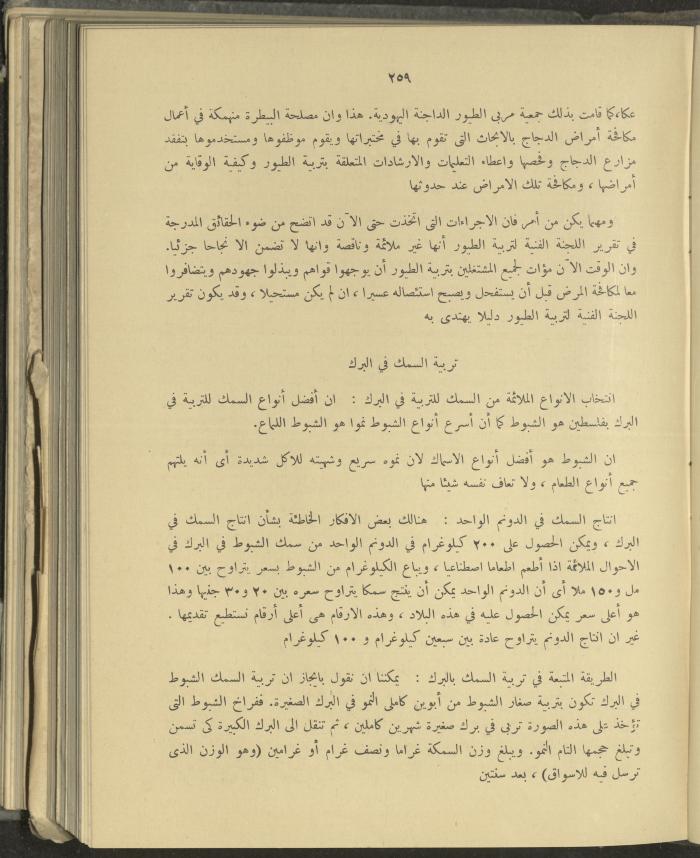 ٢٥٩
عكاء كما قامت بذلك جمعية مربى الطيور الداجنة اليهودية. هذا وان مصلحة البيطرة منهمكة في أعمال
مكافحة أمراض الدجاج بالابحاث التى تقوم بها في مختبراتها ويقوم موظفوها ومستخدموها بتفقد
مزارع الدجاج وفحصها واعطاء التعليمات والارشادات المتعلقة بتربية الطيور وكيفية الوقاية من
أمراضها ، ومكافحة تلك الامراض عند حدوثها
ومهما يكن من أمر فان الاجراءات التى اتخذت حتى الآن قد اتضح من ضوء الحقائق المدرجة
في تقرير اللجنة الفنية لتربية الطيور أنها غير ملائمة وناقصة وانها لا تضمن الا نجاحا جزئيا.
وان الوقت الآن مؤات لجميع المشتغلين بتربية الطيور أن يوجهوا قواهم ويبذلوا جهودهم ويتضافروا
معا لمكافحة المرض قبل أن يستفحل ويصبح استئصاله عسيرا ، ان لم يكن مستحيلا ، وقد يكون تقرير
اللجنة الفنية لتربية الطيور دليلا يهتدى به
تربية السمك في البرك
انتخاب الانواع الملائمة من السمك للتربية في البرك : ان أفضل أنواع السمك للتربية في
البرك بفلسطين هو الشبوط كما أن أسرع أنواع الشبوط نموا هو الشبوط اللماع.
ان الشبوط هو أفضل أنواع الاسماك لان نموه سريع وشهيته للاكل شديدة أى أنه يلتهم
جميع أنواع الطعام ، ولا تعاف نفسه شيئا منها
انتاج السمك في الدونم الواحد : هنالك بعض الافكار الخاطئة بشأن انتاج السمك في
البرك ، ويمكن الحصول على ٢٠٠ كيلوغرام في الدونم الواحد من سمك الشبوط في البرك في
الاحوال الملائمة اذا أطعم اطعاما اصطناعيا ، ويباع الكيلوغرام من الشبوط بسعر يتراوح بين ١٠٠
مل و١٥٠ ملا أى أن الدونم الواحد يمكن أن ينتج سمكا يتراوح سعره بين ٢٠ و٣٠ جنيها وهذا
هو أعلى سعر يمكن الحصول عليه في هذه البلاد ، وهذه الارقام هى أعلى أرقام نستطيع تقديمها .
غير ان انتاج الدونم يتراوح عادة بين سبعين كيلوغرام و ١٠٠ كيلوغرام
الطريقة المتبعة في تربية السمك بالبرك : يمكننا ان نقول بايجاز ان تربية السمك الشبوط
في البرك تكون بتربية صغار الشبوط من أبوين كاملى النمو في البرك الصغيرة. ففراخ الشبوط التى
تؤخذ على هذه الصورة تربى في برك صغيرة شهرين كاملين ، ثم تنقل الى البرك الكبيرة كى تسمن
وتبلغ حجمها التام النمو. ويبلغ وزن السمكة غراما ونصف غرام أو غرامين (وهو الوزن الذى
ترسل فيه للاسواق) ، بعد سنتين